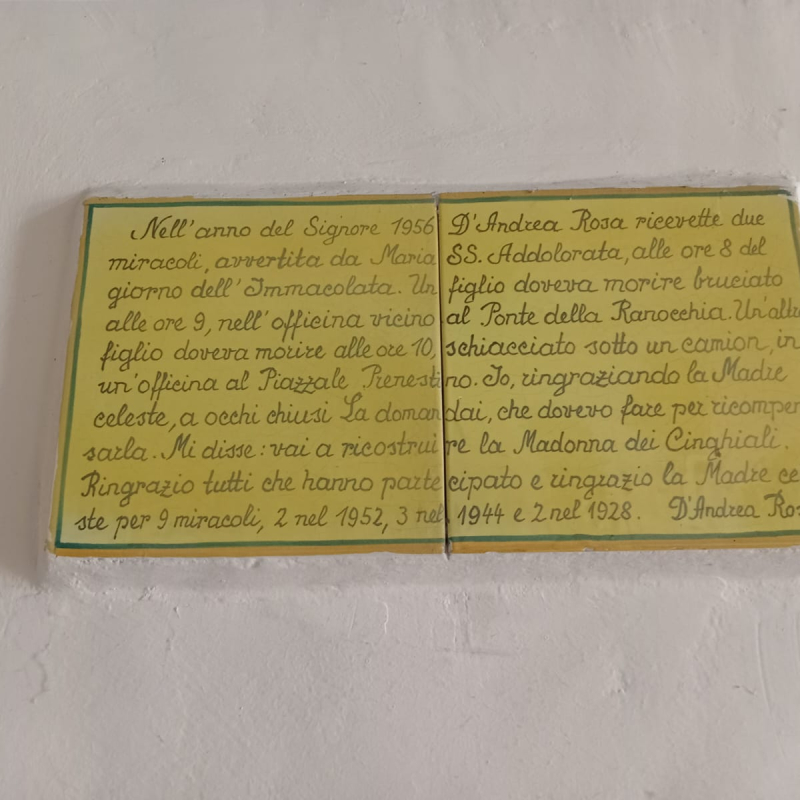 Nell'anno del Signore 1956 D'Andrea Rosa ricevette due
miracoli, avvertita da Maria SS. Addolorata, alle ore 8 del
giorno dell'Immacolata. Un figlio doveva morire bruciato
alle ore 9, nell'officina vicino al Ponte della Ranocchia. Un'alt
figlio doveva morire alle ore 10, schiacciato sotto un camion, in
un'officina al Piazzale Prenestino. Io, ringraziando la Madre
celeste, a occhi chiusi La domandai, che dovevo fare per ricompen
sarla. Mi disse: vai a ricostruire la Madonna dei Cinghiali.
Ringrazio tutti che hanno partecipato e ringrazio la Madre ce
ste per 9 miracoli, 2 nel 1952, 3 nel 1944 e 2 nel 1928. D'Andrea Ros